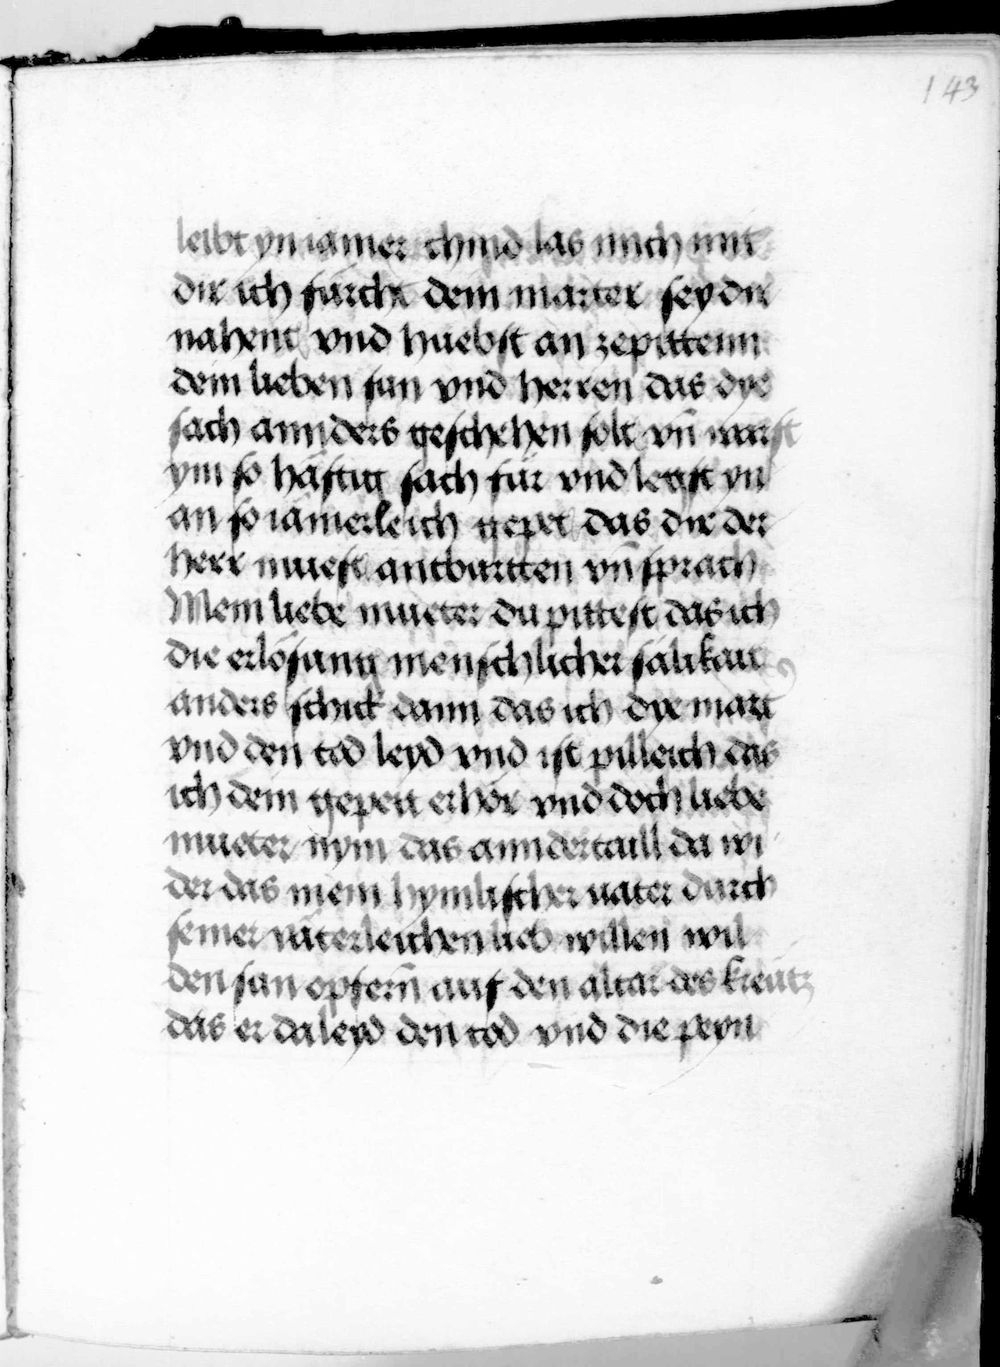 143
leibt yn iamer chind las mich mit
dir ich fürcht dein marter sey dir
nahent vnd huebst an zepittenn
dein lieben sun vnd herren das dye
sach annders geschehen solt vn̄ warfst
ym so häftig sach für vnd legst yn
an so iämerleich gepet das dir der
herr muest antburtten vn̄ sprach
Mein liebe mueter du pittest das ich
die erlösung menschlicher sälikait
anders schick dann das ich dye mart
vnd den tod leyd vnd ist pilleich das
ich dein gepett erhör vnd doch liebe
mueter nym das anndertaill da wi
der das mein hymlischer vater durch
seiner väterleichen lieb willen wil
den sun opfern̄ auf den altar des kreütz
das er da leyd den tod vnd die peyn